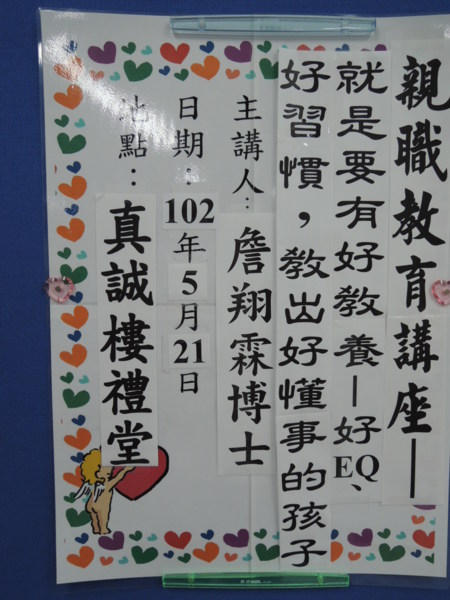 親職教育講座—
就是要有好教養—好EQ、
好習慣，教出好懂事的孩子
主講人：詹翔霖博士
日期：102年5月21日
地點：真誠樓禮堂